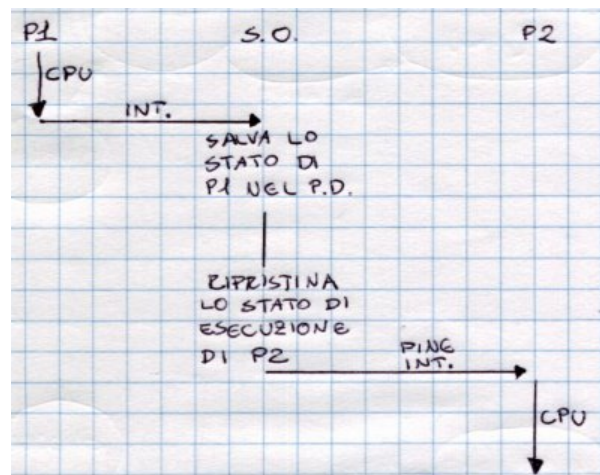 P1 S.O. P2
CPU
INT.
SALVA LO
STATO DI
P1 NEL P.D.
RIPRISTINA
LO STATO DI
ESECUZIONE
DI P2
FINE
INT.
CPU